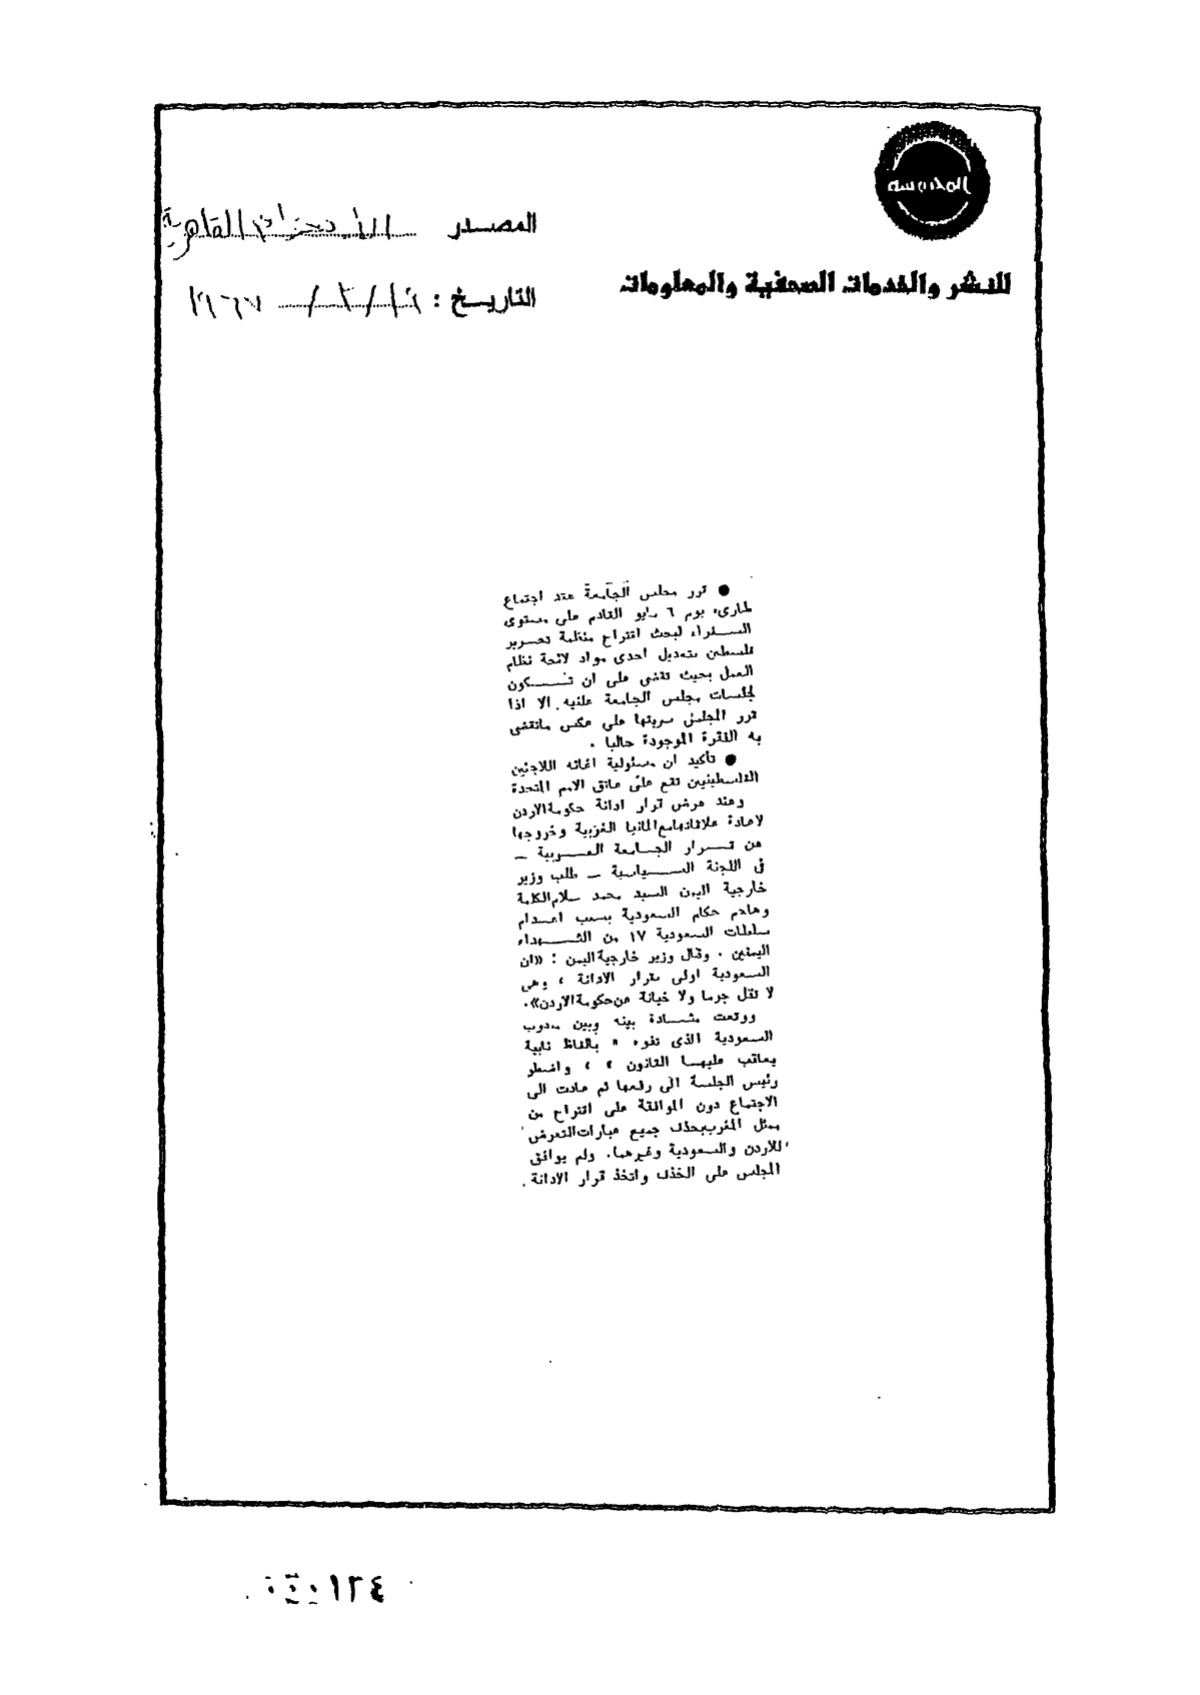 المحروسة
المصدر الأهرام القاهرية
للنشر والخدمات الصحفية والمعلومات
التاريخ : / ٣ / ١٩٦٧
● قرر مجلس الجامعة عقد اجتماع
طارىء يوم ٦ مايو القادم على مستوى
الســفراء لبحث اقتراح منظمة تحــرير
فلسطين بتعديل احدى مواد لائحة نظام
العمل بحيث تقضى على ان تــكون
جلسات مجلس الجامعة علنيه ، الا اذا
قرر المجلس سريتها على عكس ماتقضى
به الفقرة الموجودة حاليا .
● تأكيد ان مسئولية اغاثة اللاجئين
الفلسطينيين تقع على عاتق الامم المتحدة
وعند عرض قرار ادانة حكومة الاردن
لاعادة علاقاتها مع المانيا الغربية وخروجها
عن قــرار الجــامعة العــربية –
فى اللجنة الســياسية – طلب وزير
خارجية اليمن السيد محمد سلام الكلمة
وهاجم حكام السعودية بسبب اعــدام
سلطات السعودية ١٧ من الشــهداء
اليمنيين . وقال وزير خارجية اليمن : «ان
السعودية اولى بقرار الادانة ، وهى
لا تقل جرما ولا خيانة عن حكومة الاردن».
ووقعت مشــادة بينه وبين مندوب
السعودية الذى تفوه " بالفاظ نابية
يعاقب عليهــا القانون " ، واضطر
رئيس الجلسة الى رفعها ثم عادت الى
الاجتماع دون الموافقة على اقتراح من
ممثل المغرب بحذف جميع عبارات التعرض
للاردن والسعودية وغيرهما. ولم يوافق
المجلس على الحذف واتخذ قرار الادانة .
١٢٤